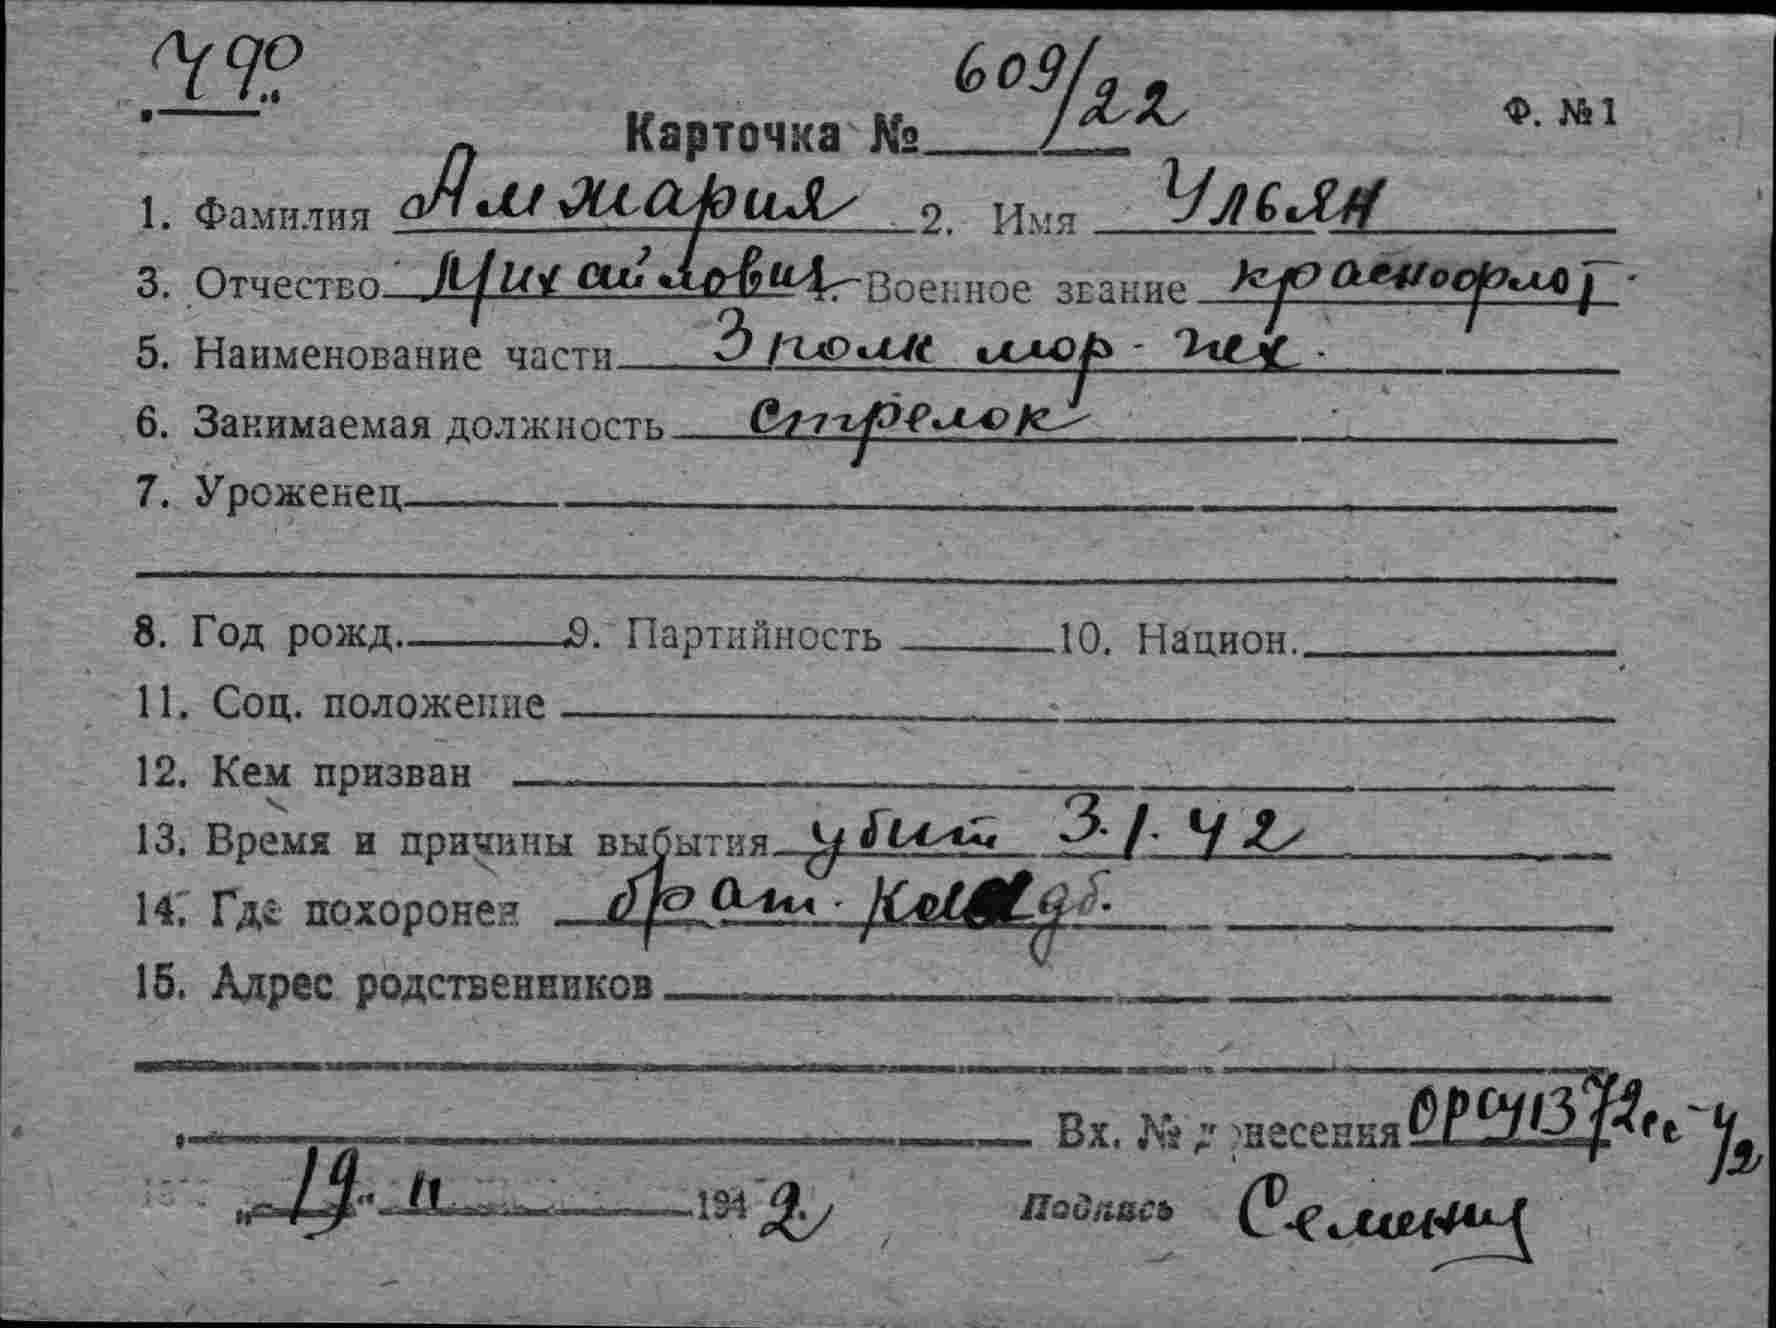 790
609/22
Карточка № Ф. №1
1. Фамилия Амжария 2. Имя Ульян
3. Отчество Михайлович 4. Военное звание краснофлот
5. Наименование части 3 полк мор. пех.
6. Занимаемая должность стрелок
7. Уроженец
8. Год рожд. 9. Партийность 10. Национ.
11. Соц. положение
12. Кем призван
13. Время и причины выбытия убит 3.1.42
14. Где похоронен брат. кладб.
15. Адрес родственников
Вх. № донесения ОРСУ 1372сс-4/2
„19“ 11 1942 Подпись